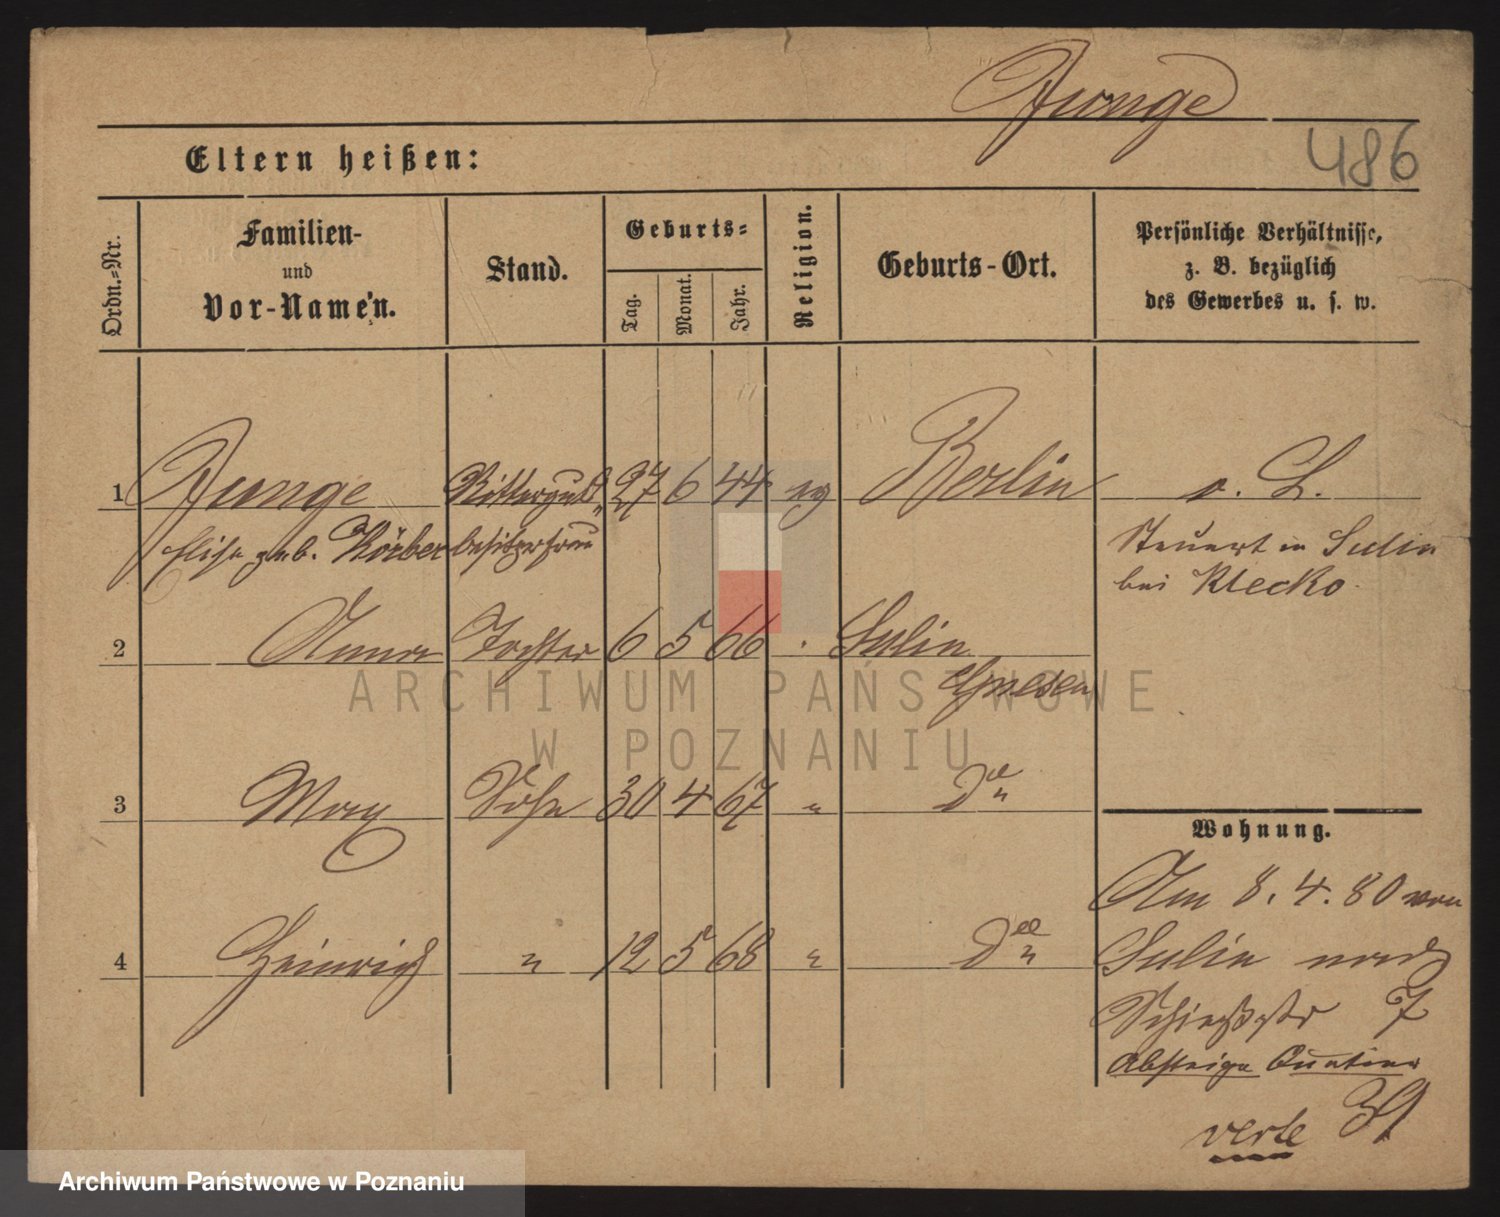 Junge
486
Eltern heißen:
Ordn.=Nr.
Familien-
und
Vor-Namen.
Stand.
Geburts=
Tag.
Monat.
Jahr.
Religion.
Geburts-Ort.
Persönliche Verhältnisse,
z. B. bezüglich
des Gewerbes u. s. w.
1 Junge Ritterguts= 27 6 44 eg Berlin o. L.
Elise geb. Körber besitzerfrau
Steuert in Sulin
bei Klecko.
2 Anna Tochter 6 5 66 . Sulin
Gnesen
3 Max Sohn 30 4 67 " do "
4 Heinrich " 12 5 68 " do "
Wohnung.
Am 8. 4. 80 von
Sulin nach
Schießstr 7
Absteige Quatier
verte
ARCHIWUM PAŃSTWOWE
W POZNANIU
Archiwum Państwowe w Poznaniu